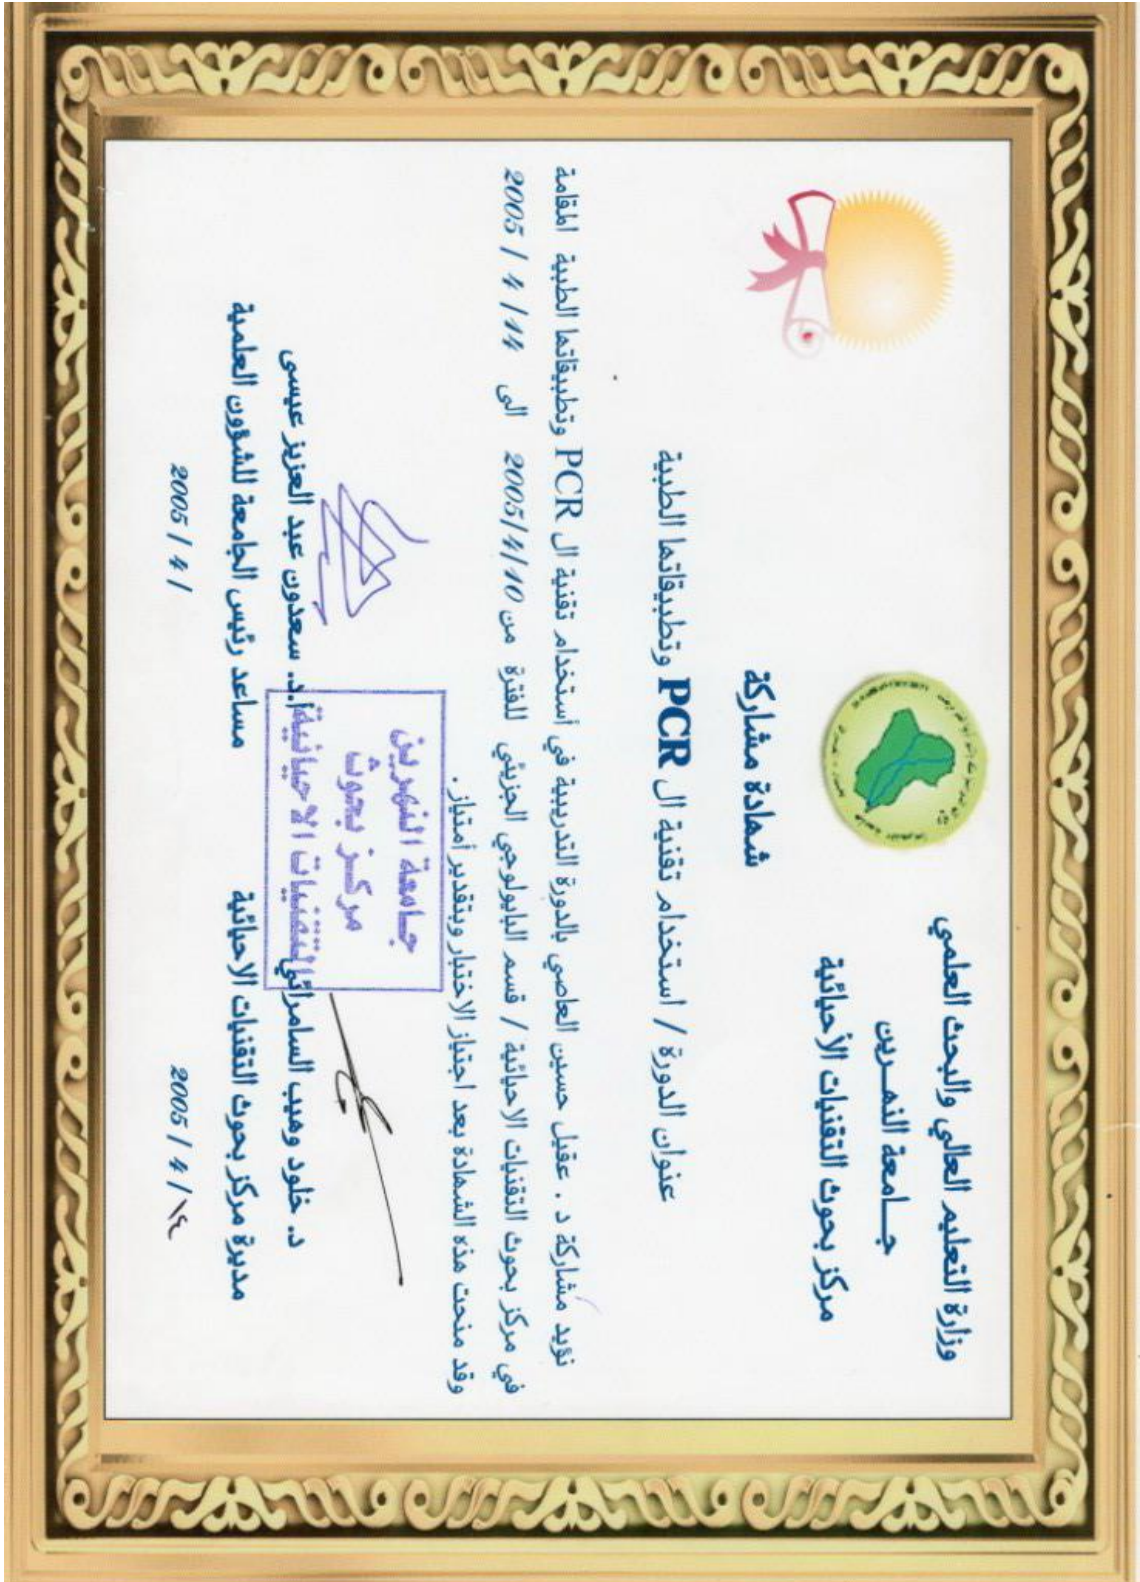 وزارة التعليم العالي والبحث العلمي
جـــامعة النهـرين
مركز بحوث التقنيات الأحيائية
شهادة مشاركة
عنوان الدورة / استخدام تقنية ال PCR وتطبيقاتها الطبية
نؤيد مشاركة د . عقيل حسين العاصي بالدورة التدريبية في أستخدام تقنية ال PCR وتطبيقاتها الطبية المقامة
في مركز بحوث التقنيات الاحيائية / قسم البايولوجي الجزيئي للفترة من 2005/4/10 الى 2005 / 4 /14
وقد منحت هذه الشهادة بعد اجتياز الاختبار وبتقدير أمتياز .
جـامعة النهرين
مركـز بحوث
التقنيات الاحيائية
د. خلود وهيب السامرائي
مديرة مركز بحوث التقنيات الاحيائية
2005 / 4 / ١٤
أ.د. سعدون عبد العزيز عيسى
مساعد رئيس الجامعة للشؤون العلمية
2005 / 4 /